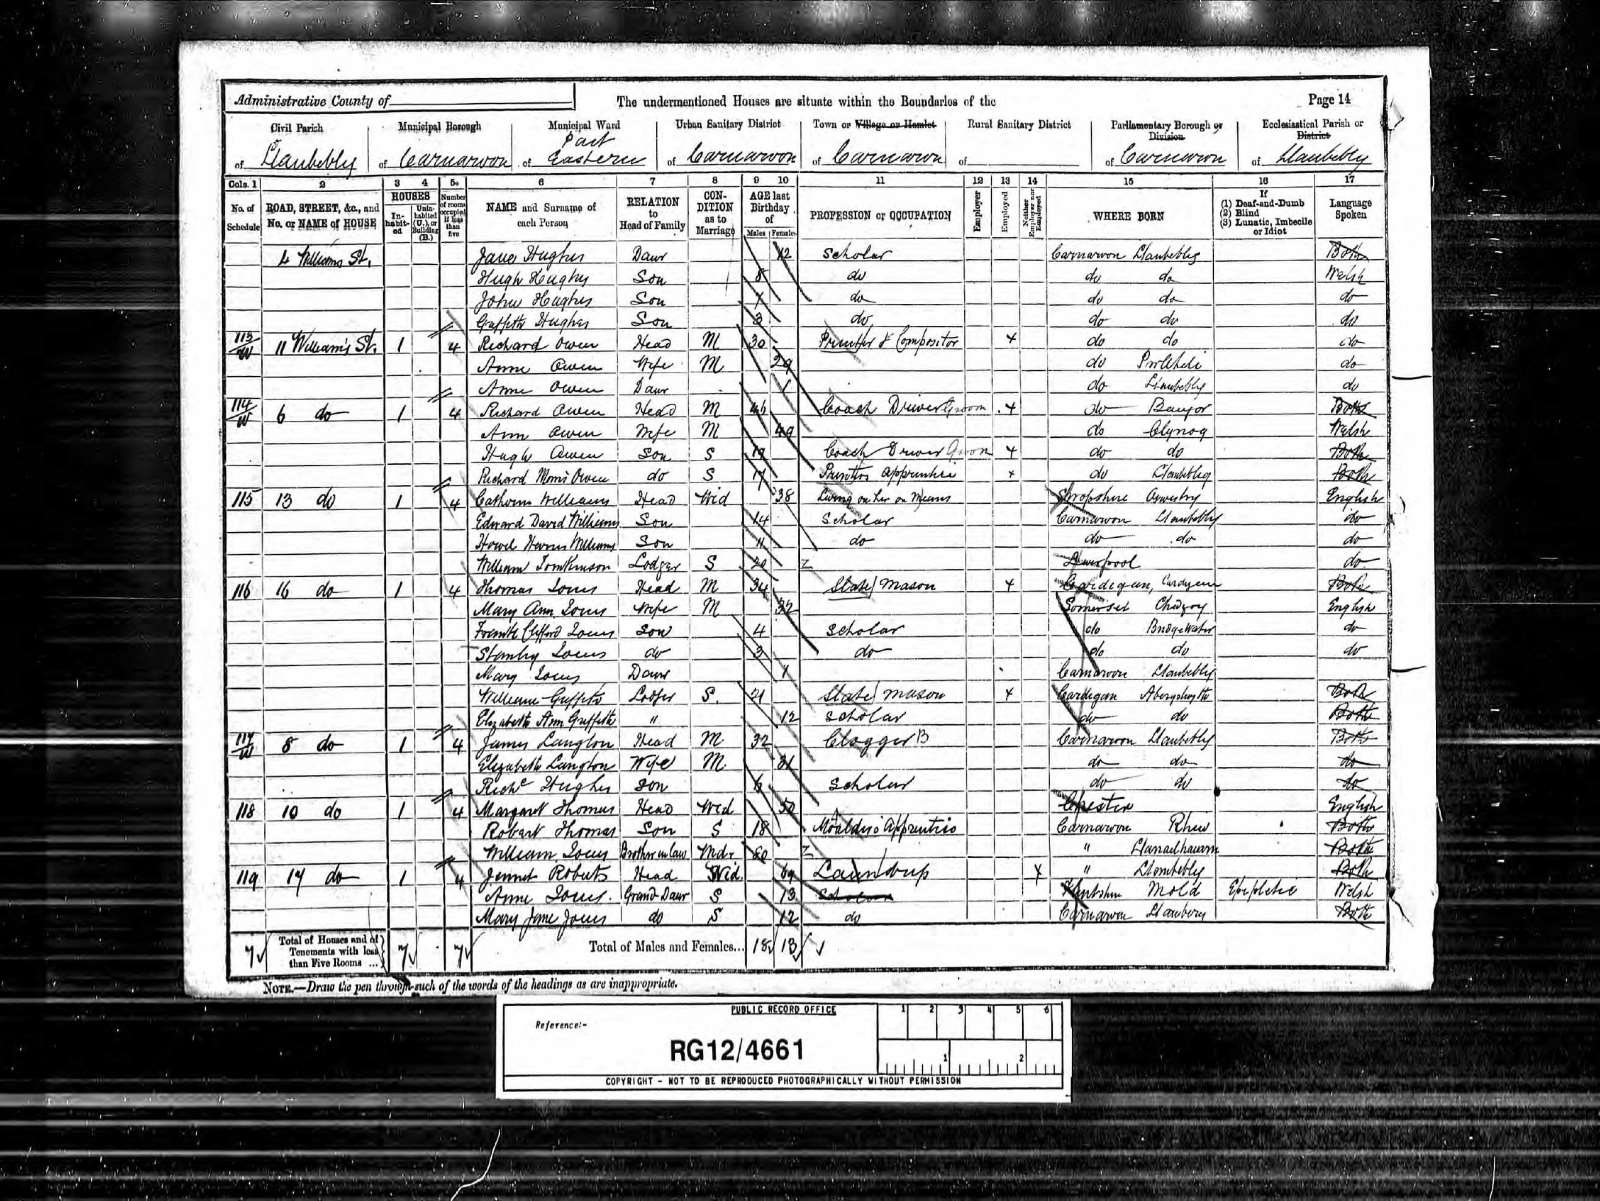 Administrative County of
The undermentioned Houses are situate within the Boundaries of the
Page 14
Civil Parish of Llanbeblig
Municipal Borough of Carnarvon
Municipal Ward of Part Eastern
Urban Sanitary District of Carnarvon
Town or Village or Hamlet of Carnarvon
Rural Sanitary District of
Parliamentary Borough or Division of Carnarvon
Ecclesiastical Parish or District of Llanbeblig
Cols. 1 2 3 4 5 6 7 8 9 10 11 12 13 14 15 16 17
No. of Schedule
ROAD, STREET, &c., and No. or NAME of HOUSE
HOUSES
Inhabited
Uninhabited (U.), or Building (B.)
Number of rooms occupied if less than five
NAME and Surname of each Person
RELATION to Head of Family
CONDITION as to Marriage
AGE last Birthday of
Males Females
PROFESSION or OCCUPATION
Employer
Employed
Neither Employer nor Employed
WHERE BORN
If (1) Deaf-and-Dumb (2) Blind (3) Lunatic, Imbecile or Idiot
Language Spoken
4 William's St. Jane Hughes Daur 12 Scholar Carnarvon Llanbeblig Both
Hugh Hughes Son 8 do do do Welsh
John Hughes Son do do do do
Griffith Hughes Son 3 do do do do
113 W 11 William's St. 1 4 Richard Owen Head M 30 Printer & Compositor x do do do
Anne Owen Wife M 29 do Pwllheli do
Anne Owen Daur 1 do Llanbeblig do
114 W 6 do 1 4 Richard Owen Head M 46 Coach Driver Groom x do Bangor Both
Ann Owen Wife M 49 do Clynog Welsh
Hugh Owen Son S 19 Coach Driver Groom x do do Both
Richard Morris Owen do S 17 Printers Apprentice x do Llanbeblig Both
115 13 do 1 4 Catherine Williams Head Wid 38 Living on her on Means Shropshire Oswestry English
Edward David Williams Son 14 Scholar Carnarvon Llanbeblig do
Howel Williams Son 11 do do do do
William Tomkinson Lodger S 20 Liverpool do
116 16 do 1 4 Thomas Jones Head M 34 Slate Mason x Cardigan, Both
Mary Ann Jones Wife M 32 Somerset English
Frank Clifford Jones Son 4 Scholar do Bridgewater do
Stanley Jones do 3 do do do do
Mary Jones Daur 1 Carnarvon Llanbeblig
William Griffith Lodger S. 21 Slate Mason x Cardigan Aberystwyth Both
Elizabeth Ann Griffith " 12 Scholar do do Both
117 W 8 do 1 4 James Langton Head M 32 Clogger B Carnarvon Llanbeblig Both
Elizabeth Langton Wife M 31 do do do
Richd Hughes Son 6 Scholar do do do
118 10 do 1 4 Margaret Thomas Head Wid 50 Chester English
Robert Thomas Son S 18 Moulders Apprentice Carnarvon Rhiw Both
William Jones Brother in law Wdr 60 " Llanaelhaiarn Both
119 17 do 1 4 Jennet Roberts Head Wid 69 Laundress x " Llanbeblig Both
Anne Jones Grand Daur S 13 Scholar Flintshire Mold Epileptic Welsh
Mary Jane Jones do S 12 do Carnarvon Llanberis Both
7 Total of Houses and of Tenements with less than Five Rooms ... 7 7 Total of Males and Females... 18 13
NOTE.—Draw the pen through such of the words of the headings as are inappropriate.
PUBLIC RECORD OFFICE
1 2 3 4 5 6
Reference:-
RG12/4661
1 2
COPYRIGHT - NOT TO BE REPRODUCED PHOTOGRAPHICALLY WITHOUT PERMISSION